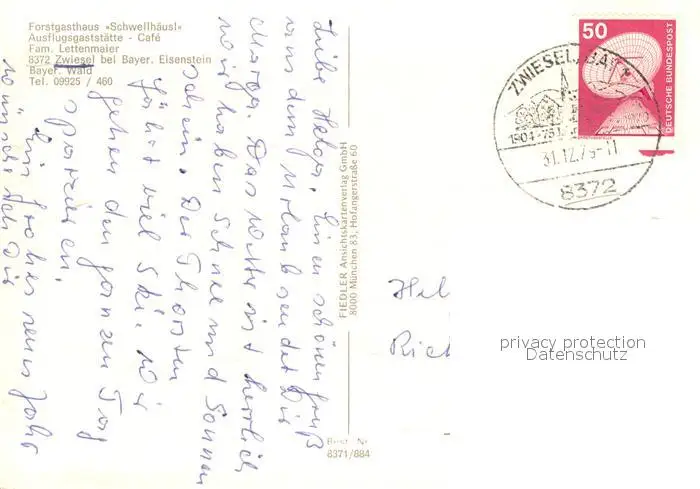 Forstgasthaus »Schwellhäusl«
Ausflugsgaststätte - Café
Fam. Lettenmaier
8372 Zwiesel bei Bayer. Eisenstein
Bayer. Wald
Tel. 09925 / 460
Liebe Helga, Einen schönen Gruß
aus dem Urlaub sendet Dir
Marga. Das Wetter ist herrlich
wir haben Schnee und Sonnen
schein. Der Thorsten
fährt viel Ski. Wir
gehen den ganzen Tag
spazieren.
Ein frohes neues Jahr
wünsche ich Dir
FIEDLER Ansichtskartenverlag GmbH
8000 München 83, Hofangerstraße 60
Best. Nr
8371/884
50
DEUTSCHE BUNDESPOST
ZWIESEL, BAY
1904-75
31.12.75-11
8372
Hel
Rich
privacy protection
Datenschutz